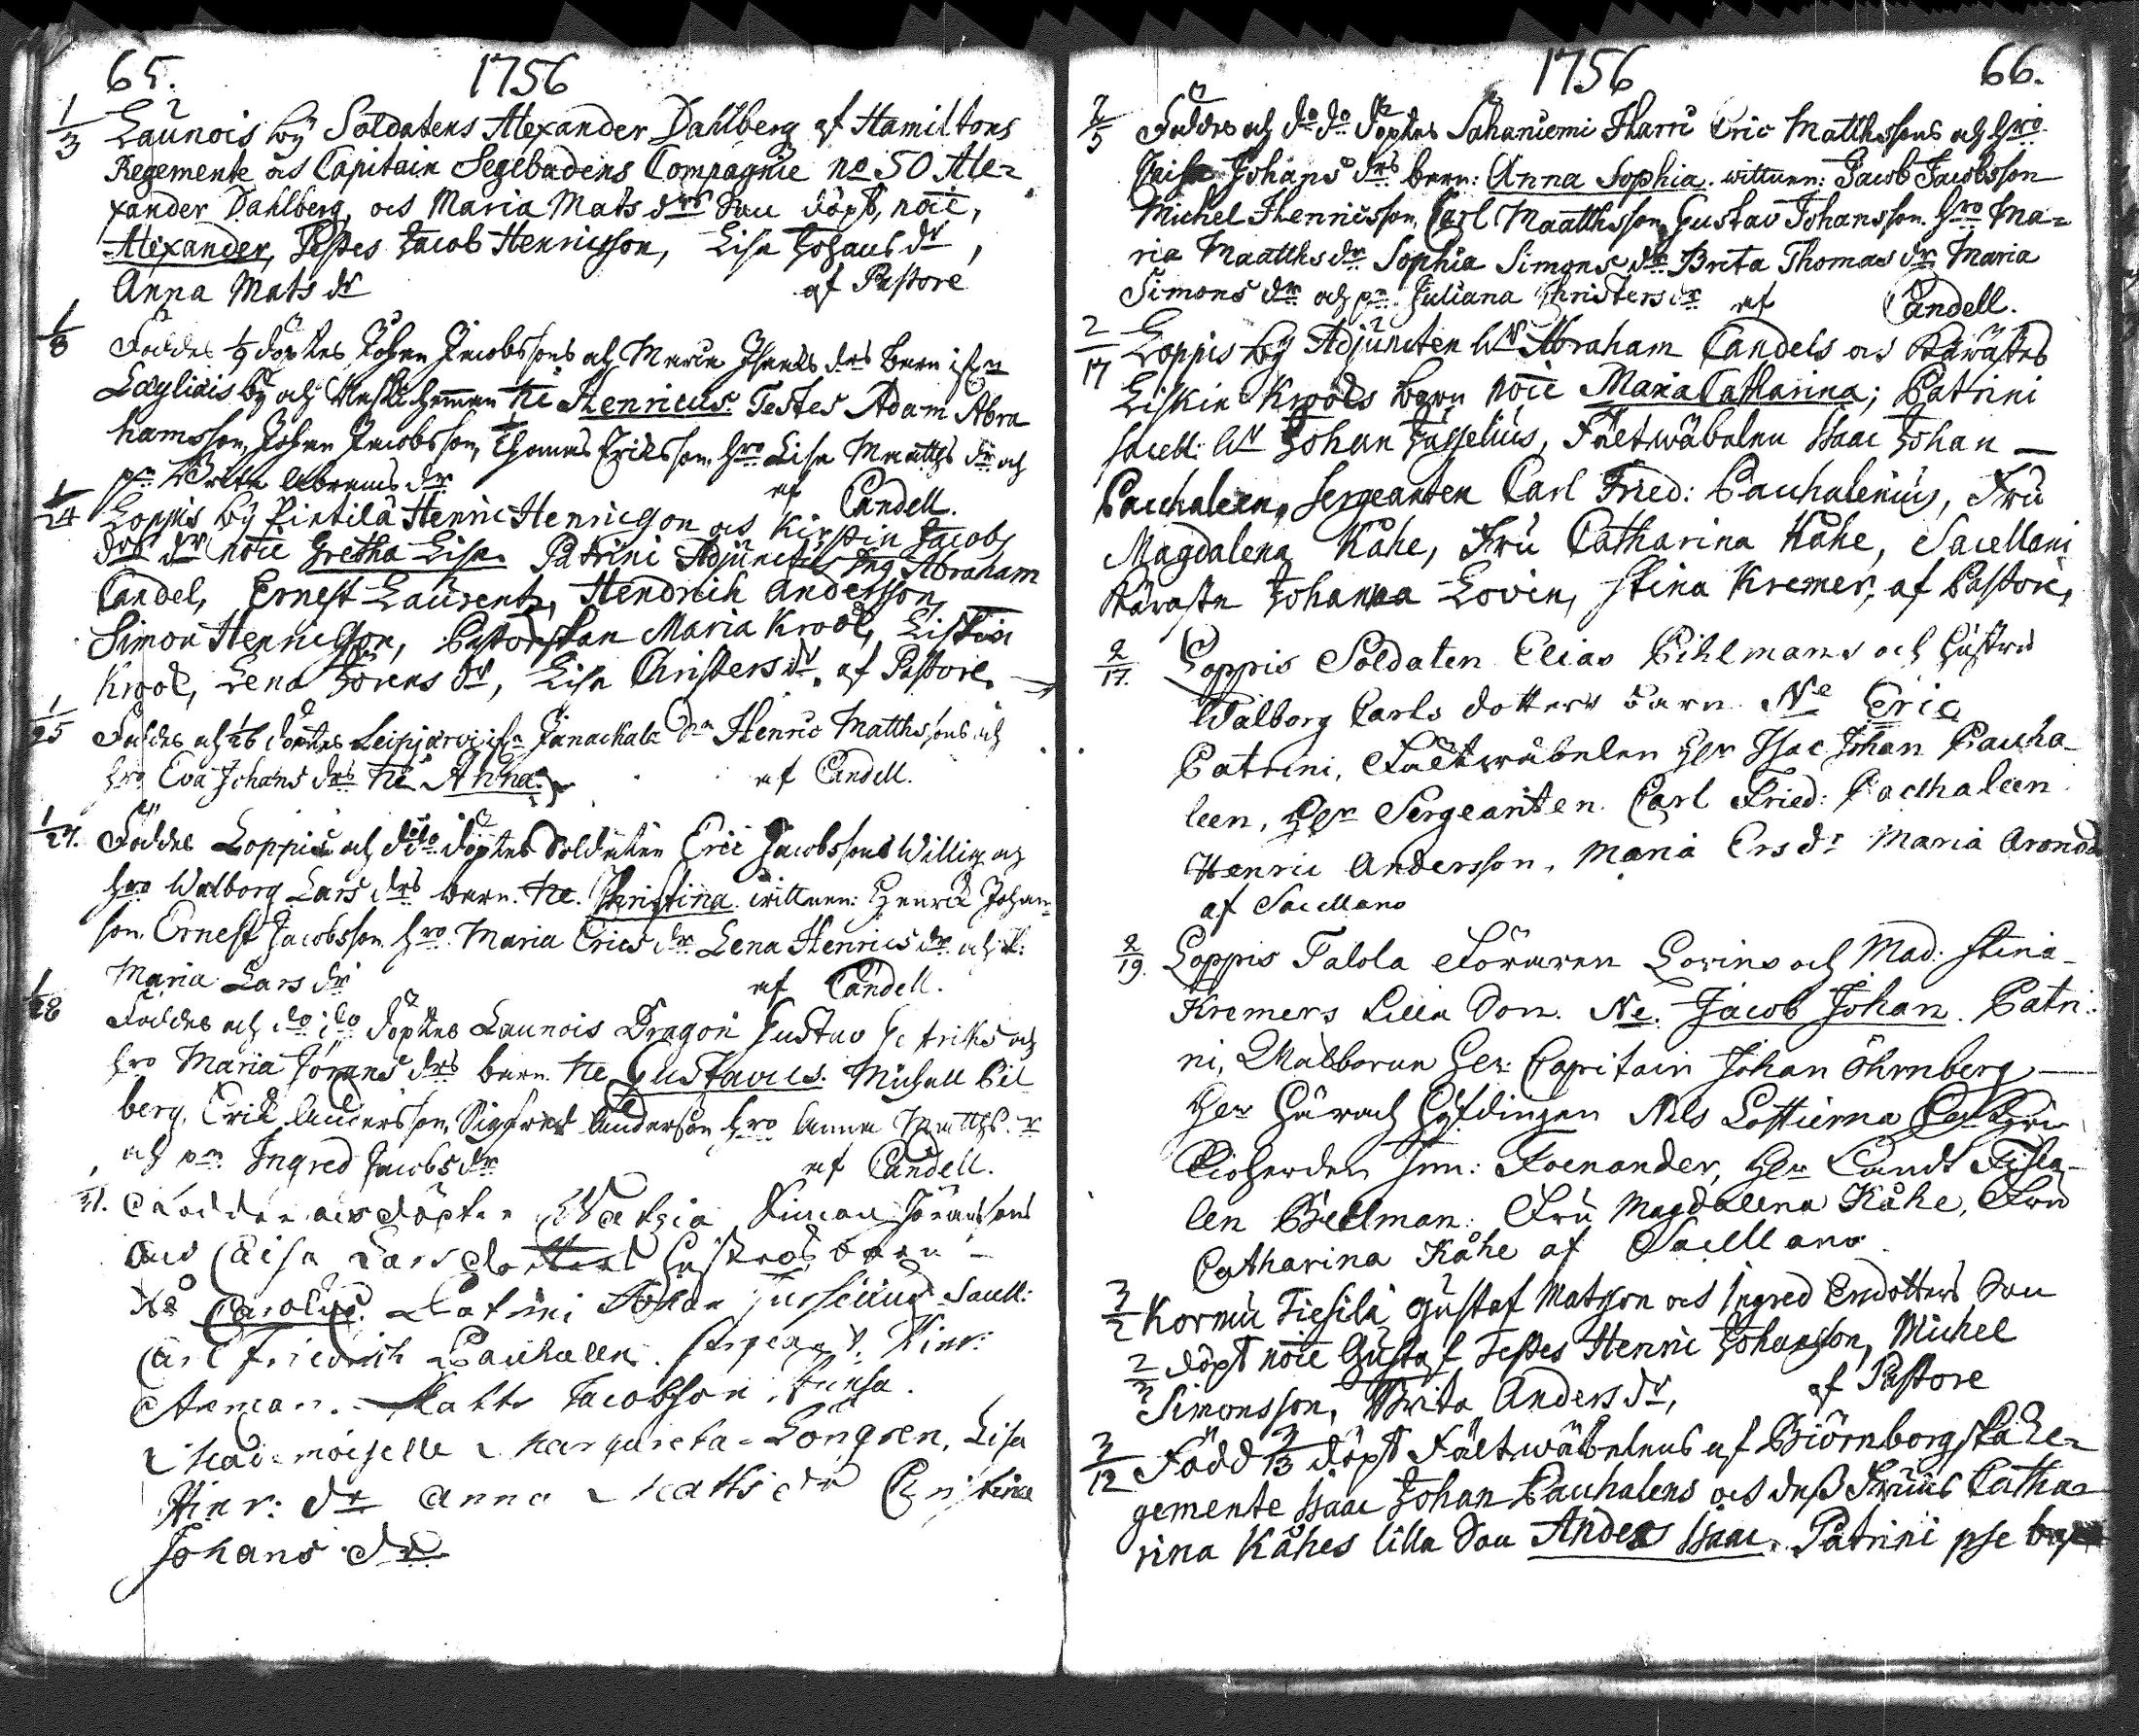 65. 1756
1/3 Launois by Soldatens Alexander Dahlberg af Hamiltons
Regemente os Capitain Segebadens Compagnie no 50 Ale=
xander Dahlberg, os Maria Mats drs Son döpt, noie,
Alexander, Testes Jacob Henricsson, Lisa Johans dr,
Anna Mats dr af Pastore
1/8 Föddes 1/9 döptes Johan Jacobssons och Maria drs barn
by och ne Henricus. Testes Adam Abra
hamsson, Johan Jacobsson, Thomas Ericsson, hro Lisa Matths dr och
pn Brita Abrams dr af Candell.
1/24 Loppis by Pintilä Henric Henricson os Kirstin Jacobs
drs dr noie Gretha Lisa. Patrini Adjunctus Abraham
Candel, Ernest Laurentz, Hendrich Andersson,
Simon Henricsson, Pastorskan Maria Krook, Liskin
Krook, Lena Jörens dr, Lisa Christers dr. af Pastore.
1/25 Föddes och 1/26 döptes Leipjärvi Janackala Henric Matthssons och
hro Eva Johans drs ne Anna. af Candell.
1/27. Föddes Loppis och dito döptes Soldaten Eric Jacobssons Willig och
hro Walborg Lars drs barn. ne. Christina. wittnen: Henric Johan
son, Ernest Jacobsson, hro Maria Erics dr Lena Henrics dr och
Maria Lars dr af Candell.
1/28 Föddes och do do döptes Launois Dragon Gustav och
hro Maria Jörans drs barn ne Gustavus. Michell Pil
berg, Erik Andersson, Sigfred Anderson hro Anna Matths dr
och pn Ingred Jacobs dr af Candell.
31. Föddes os döptes Simon Jöranssons
Caisa Lars dotters hustros barn
Ne Carolus. Patrini Johan Jusselius Sacell:
Carl Friedrich Pauhalen. Sergeant. Hinr:
Matts Jacobson
Mad=moiselle Margareta Longren, Lisa
Hinr: dr Anna Matts dr Christina
Johans dr
1756 66.
2/5 Föddes och do do döptes Sahaniemi Harri Eric Matthssons och hro
Caisa Johans drs barn: Anna Sophia. wittnen: Jacob Jacobsson
Michel Henricsson, Carl Maatthsson, Gustav Johansson. hro Ma=
ria Maatths dr Sophia Simons dr Brita Thomas dr Maria
Simons dr och pn Juliana Christers dr af Candell.
2/17 Loppis by Adjuncten Hr Abraham Candels os Käraste
Liskin Kroocks barn noie Maria Catharina; Patrini
Sacell: Hr Johan Jusselius, Fältwäbelen Isaac Johan —
Pauhaleen, Sergeanten Carl Fried: Pauhalenius, Fru
Magdalena Kåhe, Fru Catharina Kåhe, Sacellani
Kärasta Johanna Lovin, Stina Kremer, af Pastore,
2/17. Loppis Soldaten Elias Pihlmans och hustrus
Walborg Carls dotters barn Ne Eric
Patrini, Fältwäbelen Her Isac Johan Pauha
leen, Her Sergeanten Carl Fried: Pauhaleen
Henric Andersson, Maria Ers dr Maria Arons dr
af Sacellano
2/19. Loppis Talola Lovins och Mad: Stina
Kremers Lilla Son. Ne. Jacob Johan. Patri:
ni, Wälborne Her Capitain Johan Öhrnberg —
Her Häradz Höfdingen Nils Lostierna
Forenander, Her Landt Fiska
len Bellman. Fru Magdalena Kåhe, Fru
Catharina Kåhe af Sacellano
3/2 Kormu Tiesilä Gustaf Matsson os Ingred Ersdotters Son
2/3 döpt noie Gustaf Testes Henric Johansson, Michel
Simonsson, Brita Anders dr, af Pastore
3/12 Född 3/13 döpt Fältwäbelens af Biörneborgska Re=
gemente Isaac Johan Pauhalens os dess Fruus Catha=
rina Kåhes lilla Son Anders Isaac. Patrini pse